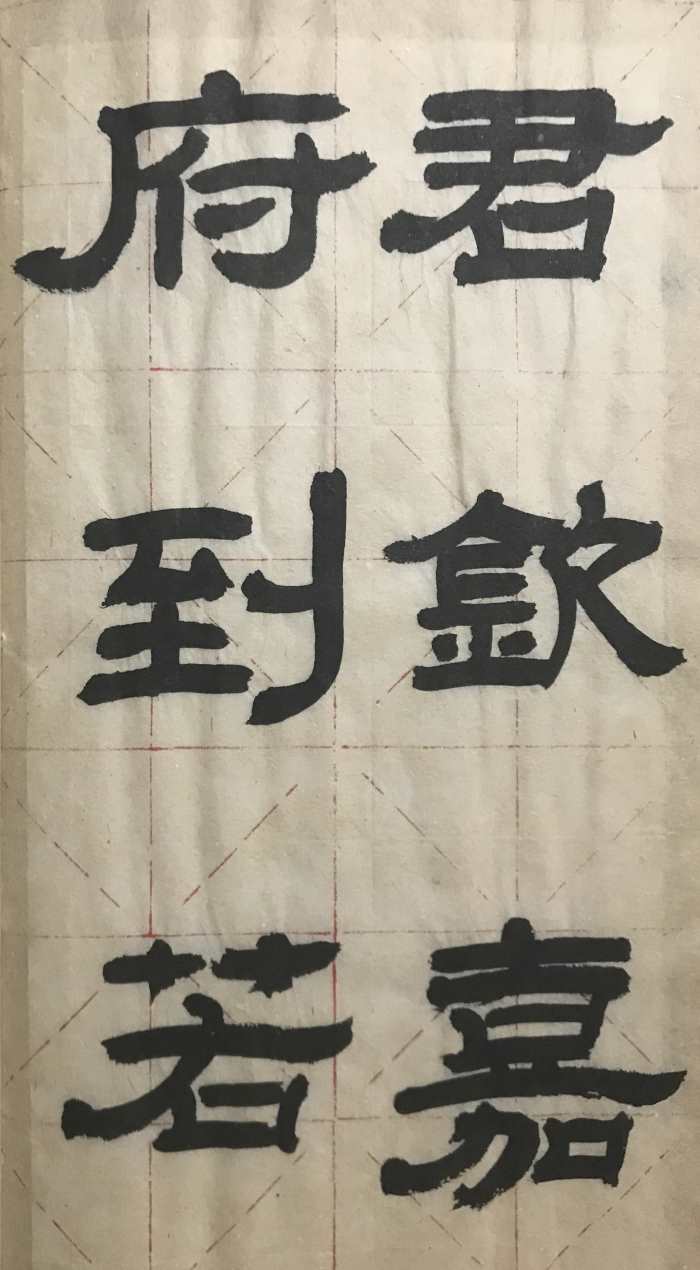 府君
到欽
若嘉